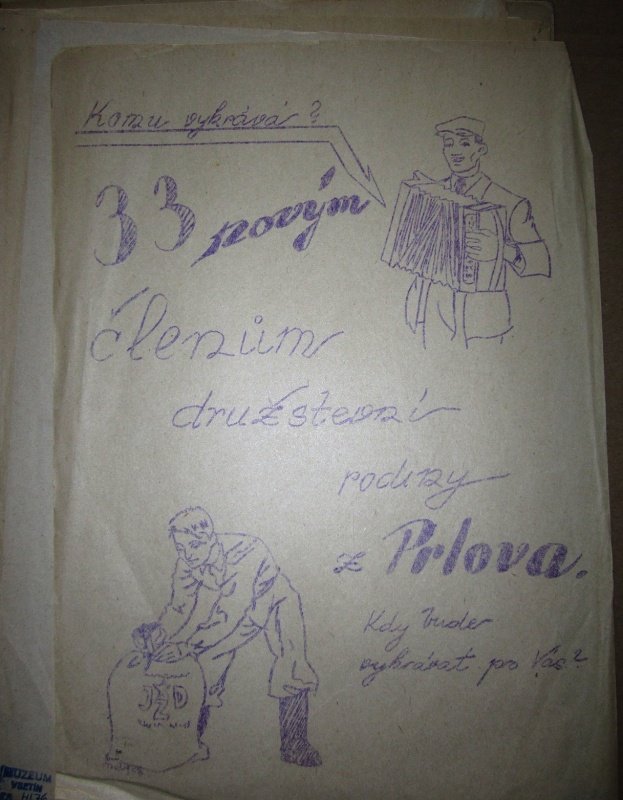 Komu vyhrává?
33 novým
členům
družstevní
rodiny
z Prlova.
Kdy bude
vyhrávat pro Vás?
JZD
MUZEUM
VSETÍN